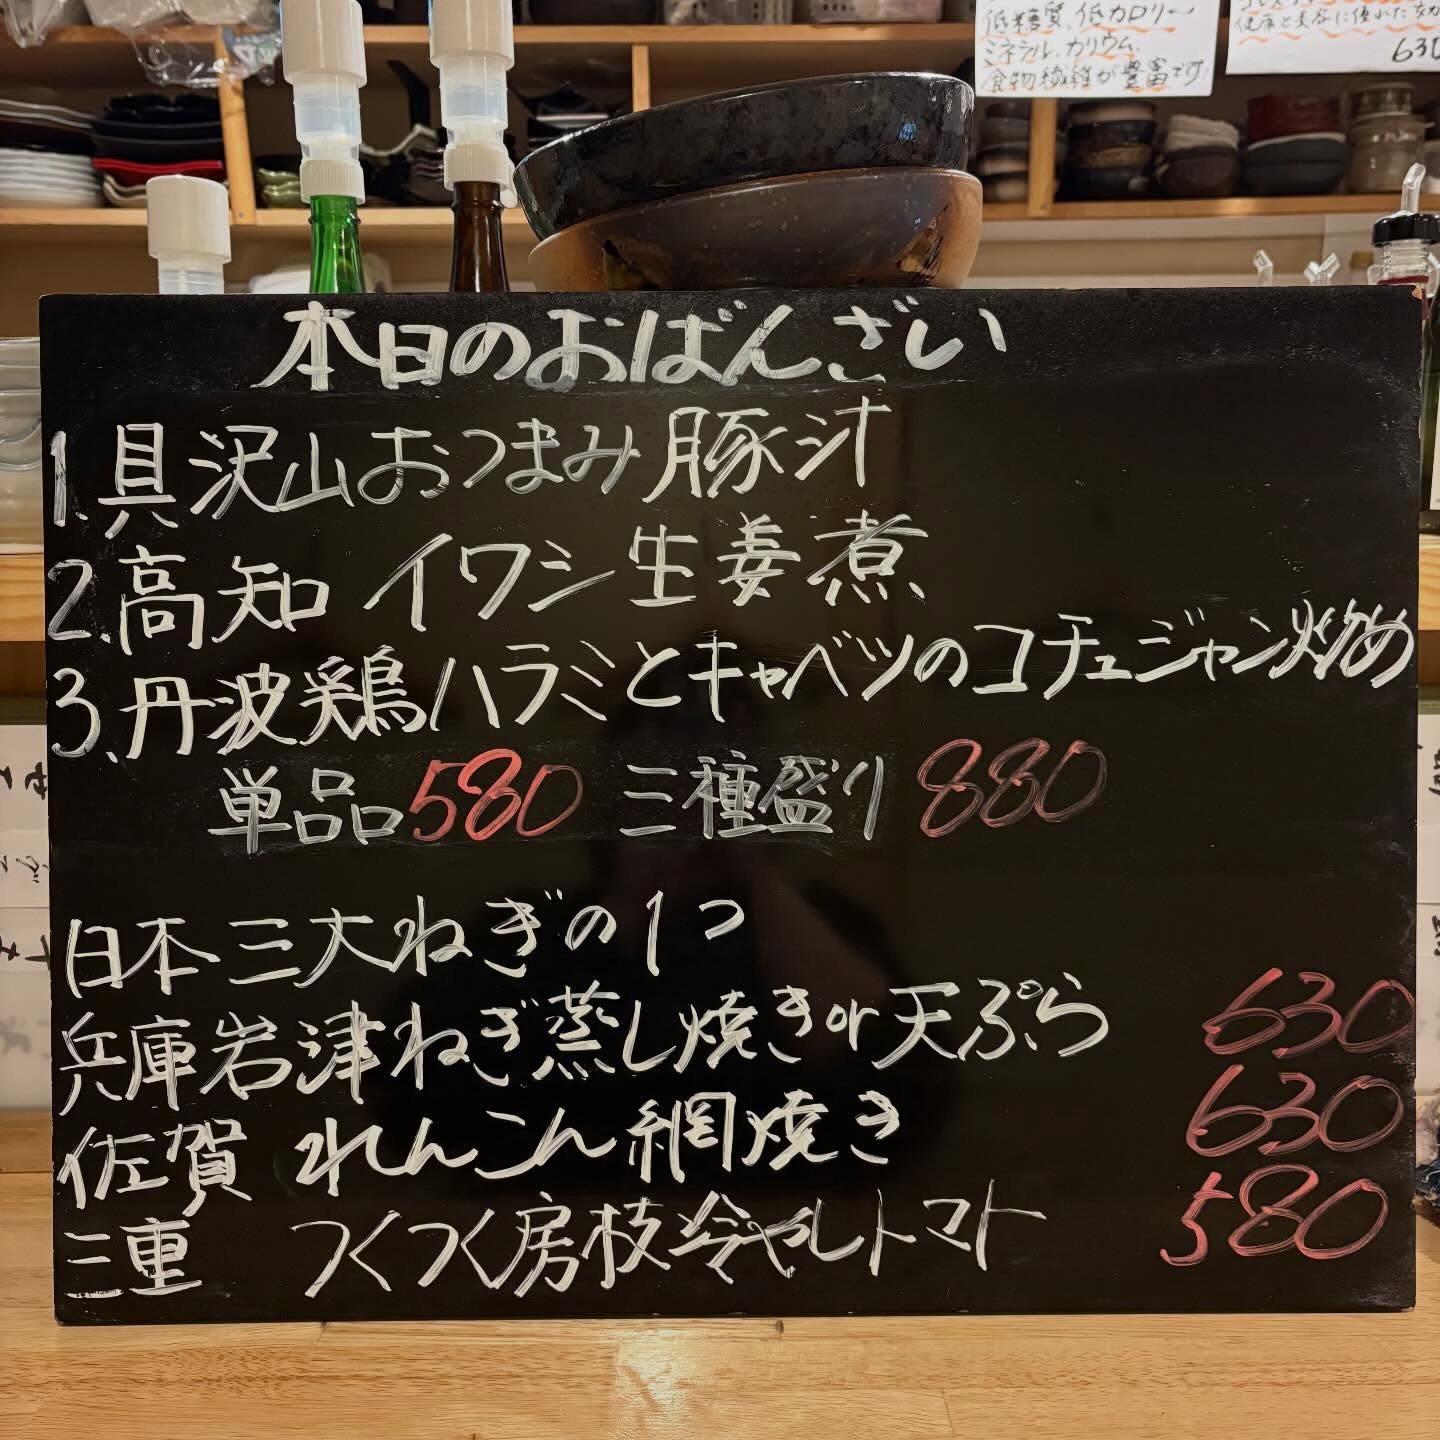 低糖質、低カロリー
ミネラル、カリウム、
食物繊維が豊富です!
630
本日のおばんざい
1.具沢山おつまみ豚汁
2.高知 イワシ生姜煮
3.丹波鶏ハラミとキャベツのコチュジャン炒め
単品580 三種盛り 880
日本三大ねぎの1つ
兵庫岩津ねぎ蒸し焼きor天ぷら 630
佐賀 れんこん網焼き 630
三重 つくつく房枝冷やしトマト 580